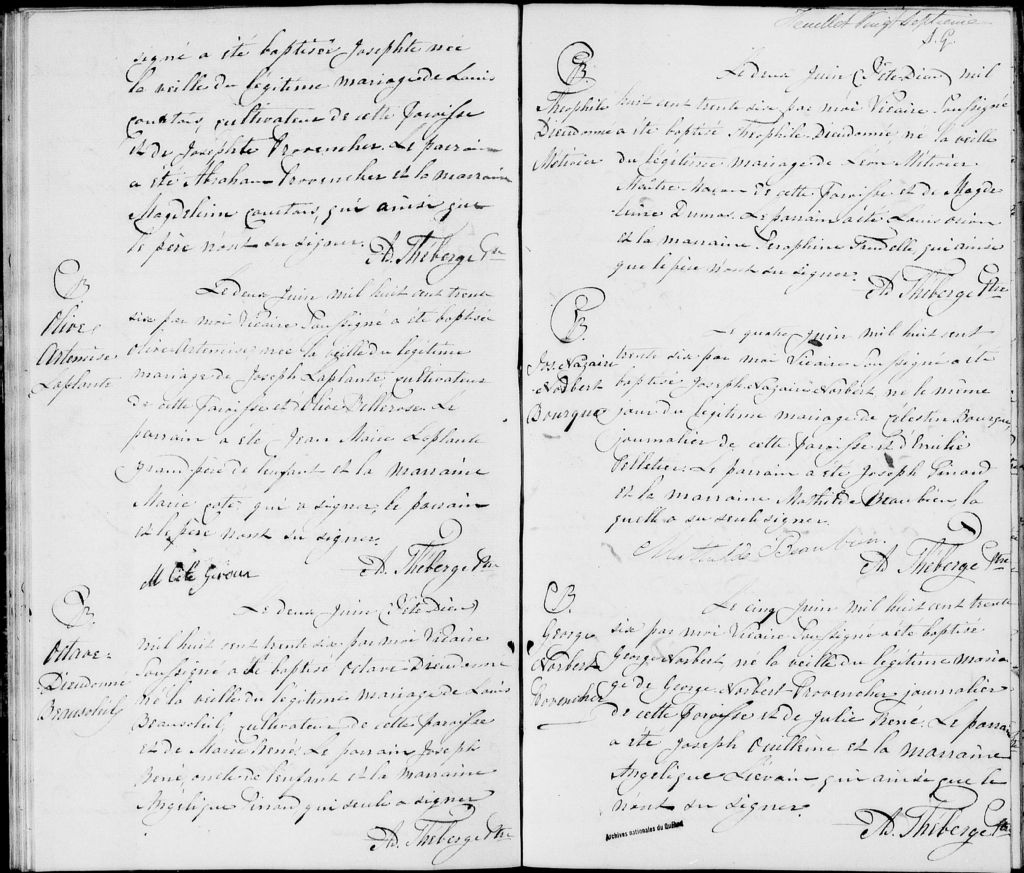 signé a été baptisée Josephte née
la veille du légitime mariage de Louis
courtois, cultivateur de cette Paroisse
et de Josephte Provencher. Le parrain
a été Abraham Provencher et la marraine
Magdeleine courtois, qui ainsi que
le père n'ont su signer.
A. Théberge Ptre
B.
Olive
Artemise
Laplante
Le deux Juin mil huit cent trente
six par moi Vicaire Soussigné a été baptisée
Olive Artemise née la veille du légitime
mariage de Joseph Laplante, cultivateur
de cette Paroisse et d'Olive Bellerose. Le
parrain a été Jean Marie Laplante
grand père de l'enfant et la marraine
Marie coté qui a signé, le parrain
et le père n'ont su signer.
M Côté
A. Théberge Ptre
B.
Octave
Dieudonné
Beausoleil
Le deux Juin (Fête Dieu)
mil huit cent trente six par moi Vicaire
Soussigné a été baptisé Octave Dieudonné
né la veille du légitime mariage de Louis
Beausoleil, cultivateur de cette paroisse
et de Marie René. Le parrain Joseph
René, oncle de l'enfant et la marraine
Angélique qui seule a signer
A. Théberge Ptre
Feuillet Vingt Septieme
B.
Théophile
Dieudonné
Métivier
Le deux Juin (Fête Dieu) mil
huit cent trente six par moi Vicaire Soussigné
a été baptisé Théophile Dieudonné, né la veille
du légitime mariage de Léon Métivier
Maître Maçon de cette Paroisse et de Magde
leine Dumas. Le parrain a été Louis
et la marraine Séraphine Trudelle, qui ainsi
que le père n'ont su signer.
A. Théberge Ptre
B.
Jos. Nazaire
Norbert
Bourque
Le quatre Juin mil huit cent
trente six par moi Vicaire Soussigné a été
baptisé Joseph Nazaire Norbert né le même
jour du légitime mariage de Celestin Bourque,
journalier de cette Paroisse et d'Emilie
Pelletier. Le parrain a été Joseph
et la marraine Mathilde Beaubien la
quelle a su seule signer.
Mathilde Beaubien
A. Théberge Ptre
B.
George
Norbert
Provencher
Le cinq Juin mil huit cent trente
six par moi Vicaire Soussigné a été baptisé
George Norbert né la veille du légitime maria
ge de George Norbert Provencher journalier
de cette Paroisse et de Julie René. Le parrain
a été Joseph et la marraine
Angélique qui ainsi que le
n'ont su signer.
A. Théberge Ptre
Archives nationales du Québec